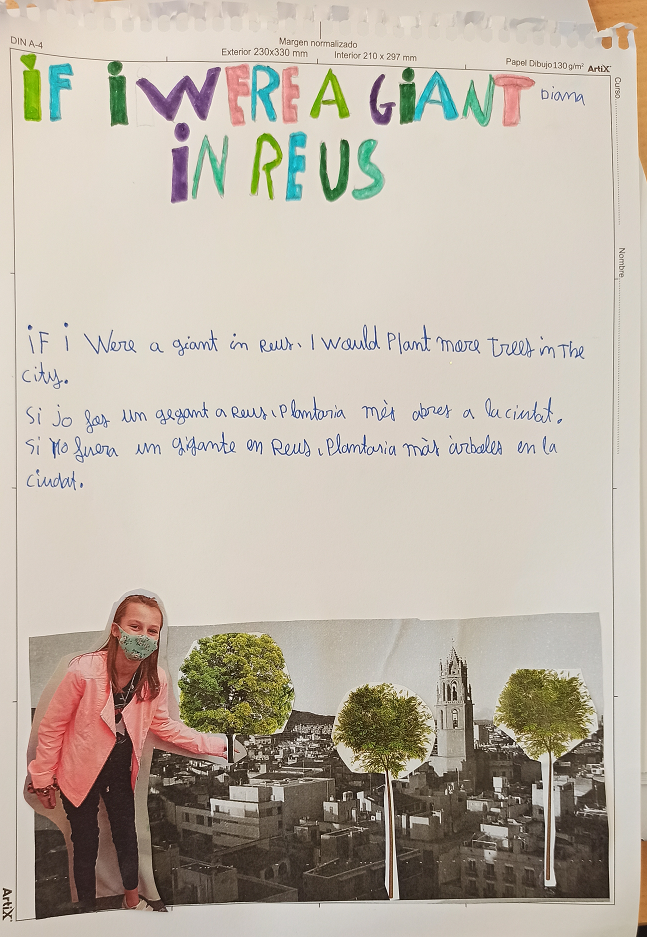 DIN A-4
Margen normalizado
Exterior 230x330 mm Interior 210 x 297 mm
Papel Dibujo 130 g/m² ArtiX
Curso
iF i WERE A GiANT
Diana
iN REUS
Nombre
iF i Were a giant in Reus, I would Plant more Trees in The
city.
Si jo fos un gegant a Reus, Plantaria mès abres a la ciutat.
Si yo fuera un gigante en Reus, Plantaria màs àrboles en la
ciudat.
ArtiX